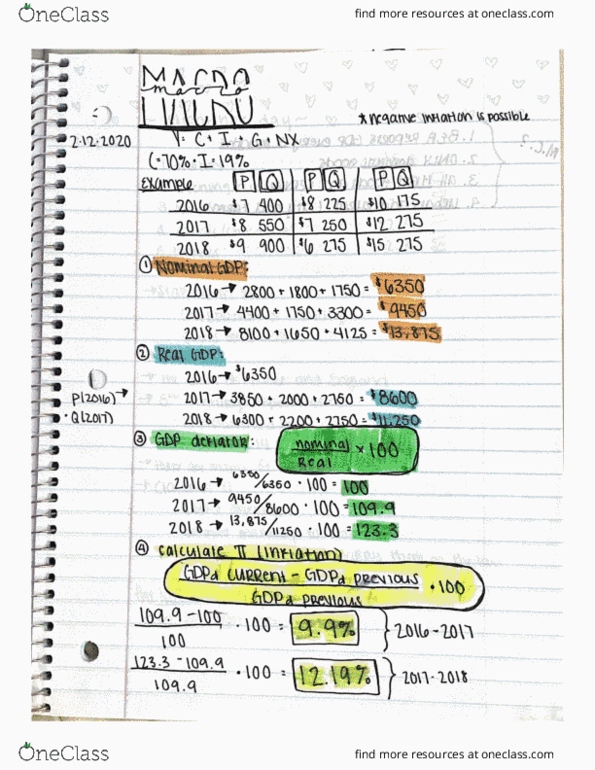 OneClass
find more resources at oneclass.com
MACRO
macro
* negative inflation is possible
2.12.2020
Y= C + I + G + NX
C·70%· I·19%
1. BEA reposts GDP every
2. ONLY
3. All
4.
Example P Q P Q P Q
2016 $7 400 $8 225 $10 175
2017 $8 550 $7 250 $12 275
2018 $9 900 $6 275 $15 275
① Nominal GDP:
2016 → 2800 + 1800 + 1750 = $6350
2017 → 4400 + 1750 + 3300 = $9450
2018 → 8100 + 1650 + 4125 = $13,875
② Real GDP:
2016 → $6350
P(2016) →
2017 → 3850 + 2000 + 2750 = $8600
· Q(2017)
2018 → 6300 + 2200 + 2750 = $11,250
③ GDP deflator: nominal
Real
× 100
2016 → 6350/6350 · 100 = 100
2017 → 9450/8600 · 100 = 109.9
2018 → 13,875/11250 · 100 = 123.3
④ calculate π (inflation)
GDPd current - GDPd previous
GDPd previous
· 100
109.9 - 100
100
· 100 = 9.9% } 2016 - 2017
123.3 - 109.9
109.9
· 100 = 12.19% } 2017 - 2018
OneClass
find more resources at oneclass.com